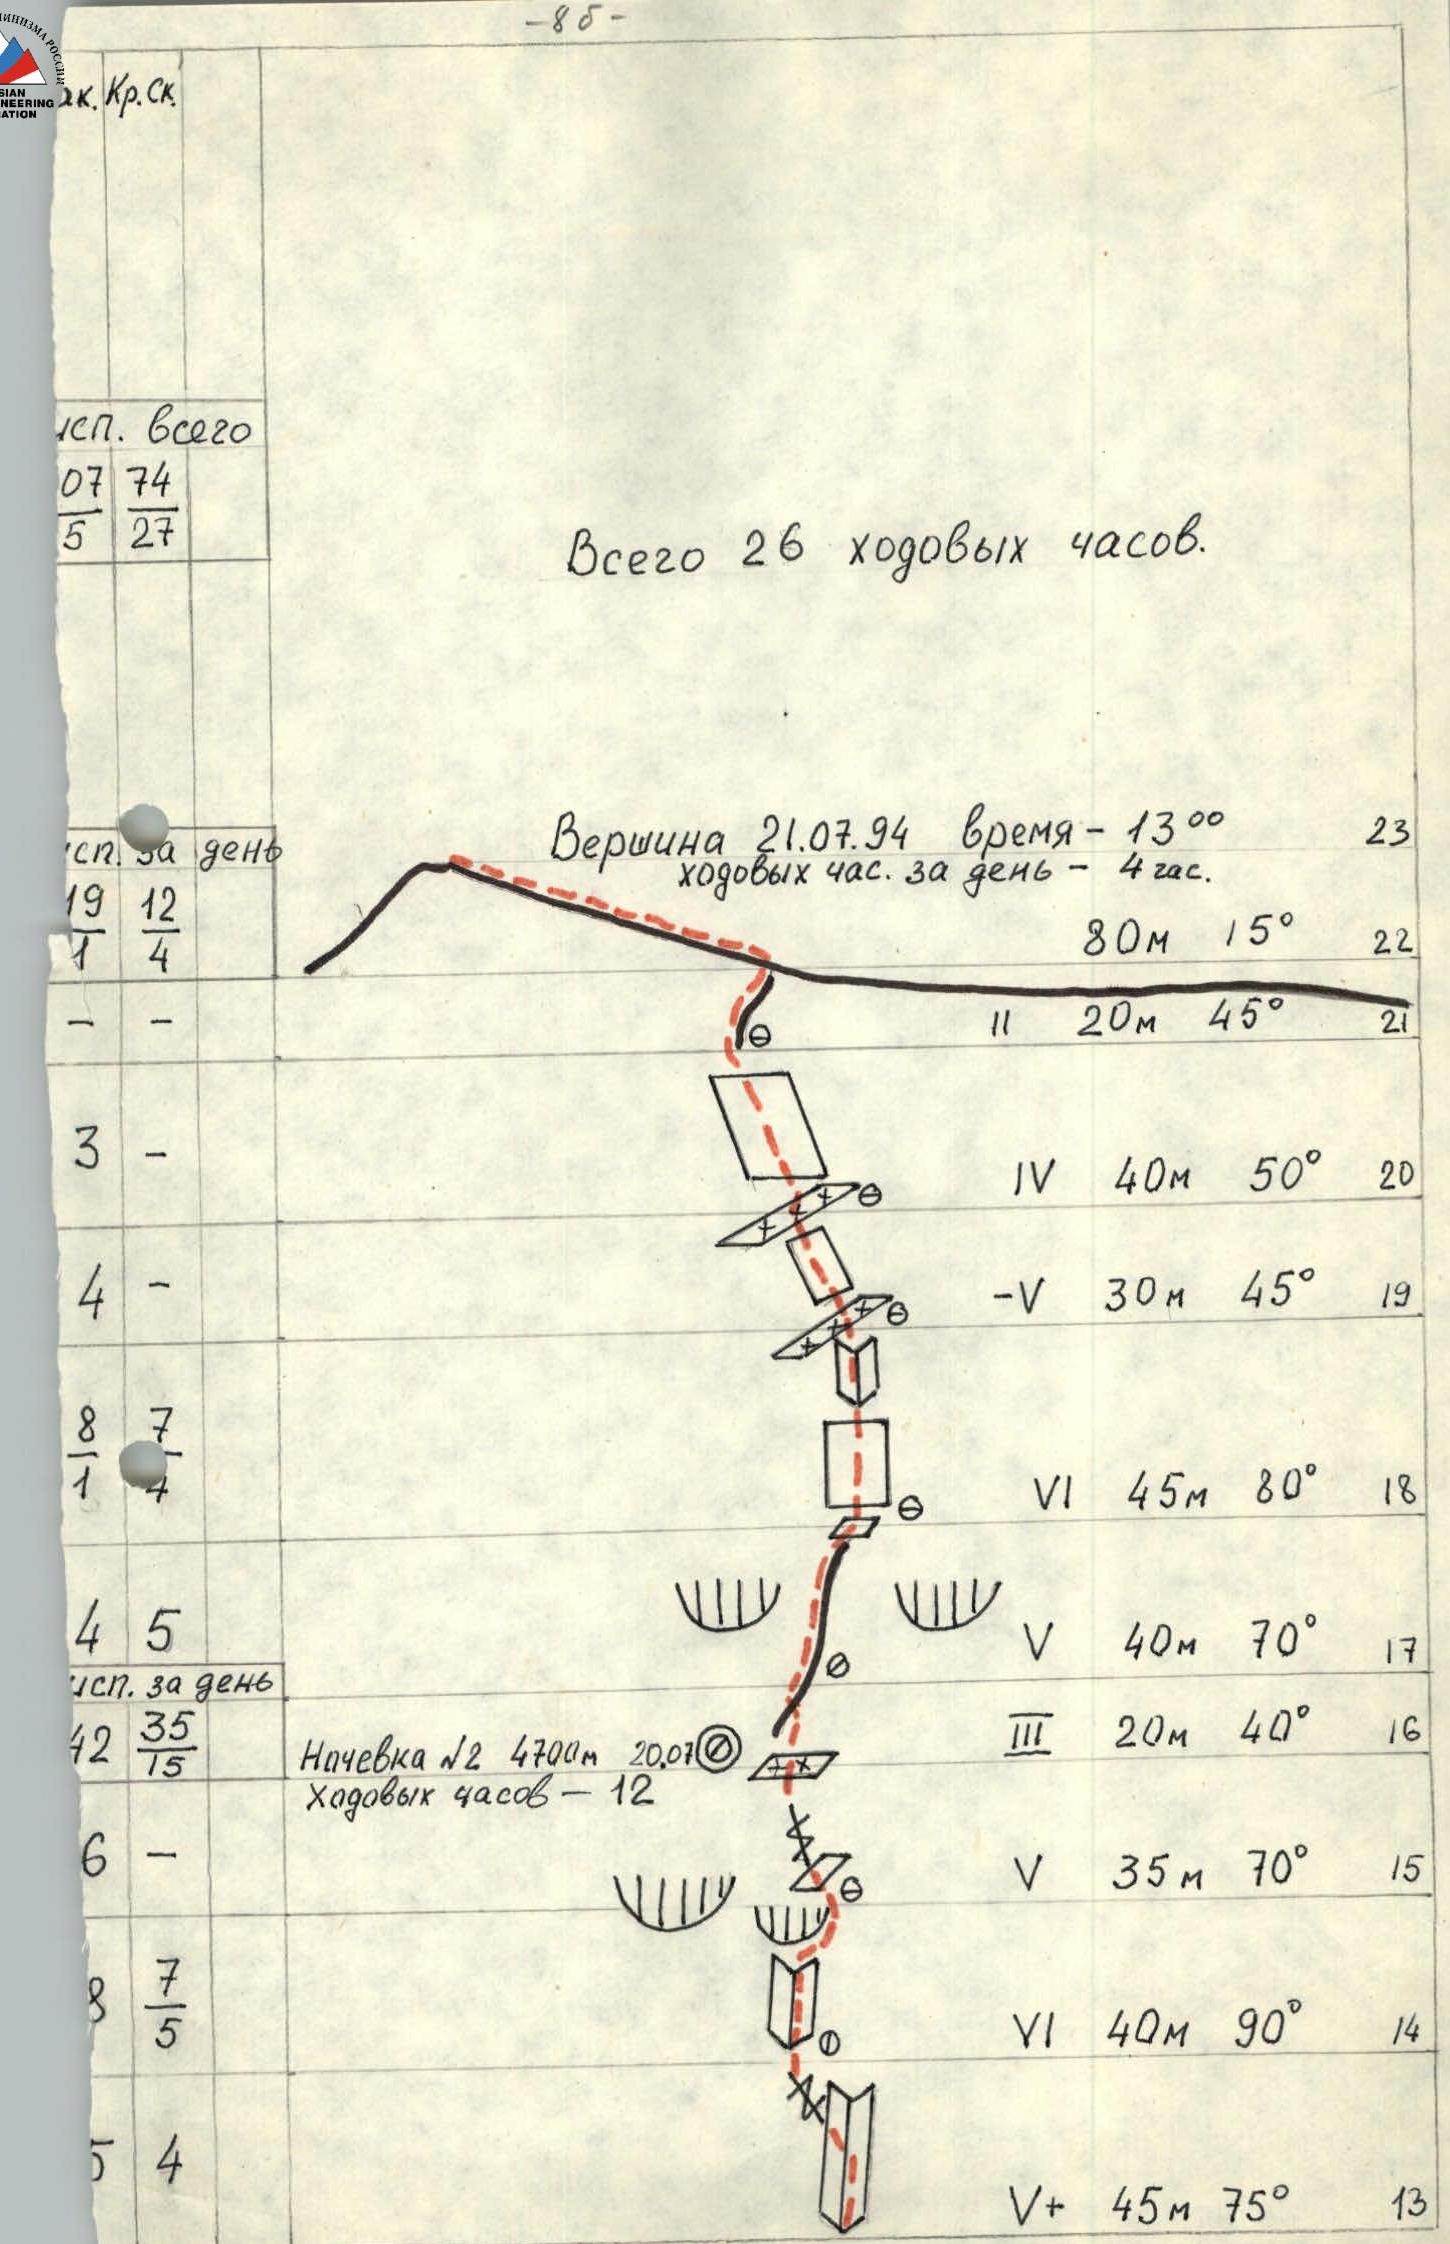 -8б-
ИНИЗМА РОССИИ
SIAN
NEERING
ATION
ак. Кр. Ск.
исп. всего
07 74
5 27
Всего 26 ходовых часов.
Вершина 21.07.94 время - 13⁰⁰ 23
ходовых час. за день - 4 час.
исп. за день
19 12
1 4
80м 15° 22
- - II 20м 45° 21
3 - IV 40м 50° 20
4 - -V 30м 45° 19
8 7
1 4
VI 45м 80° 18
4 5 V 40м 70° 17
исп. за день
42 35
15
III 20м 40° 16
Ночевка №2 4700м 20.07
Ходовых часов - 12
6 - V 35м 70° 15
8 7
5
VI 40м 90° 14
5 4 V+ 45м 75° 13